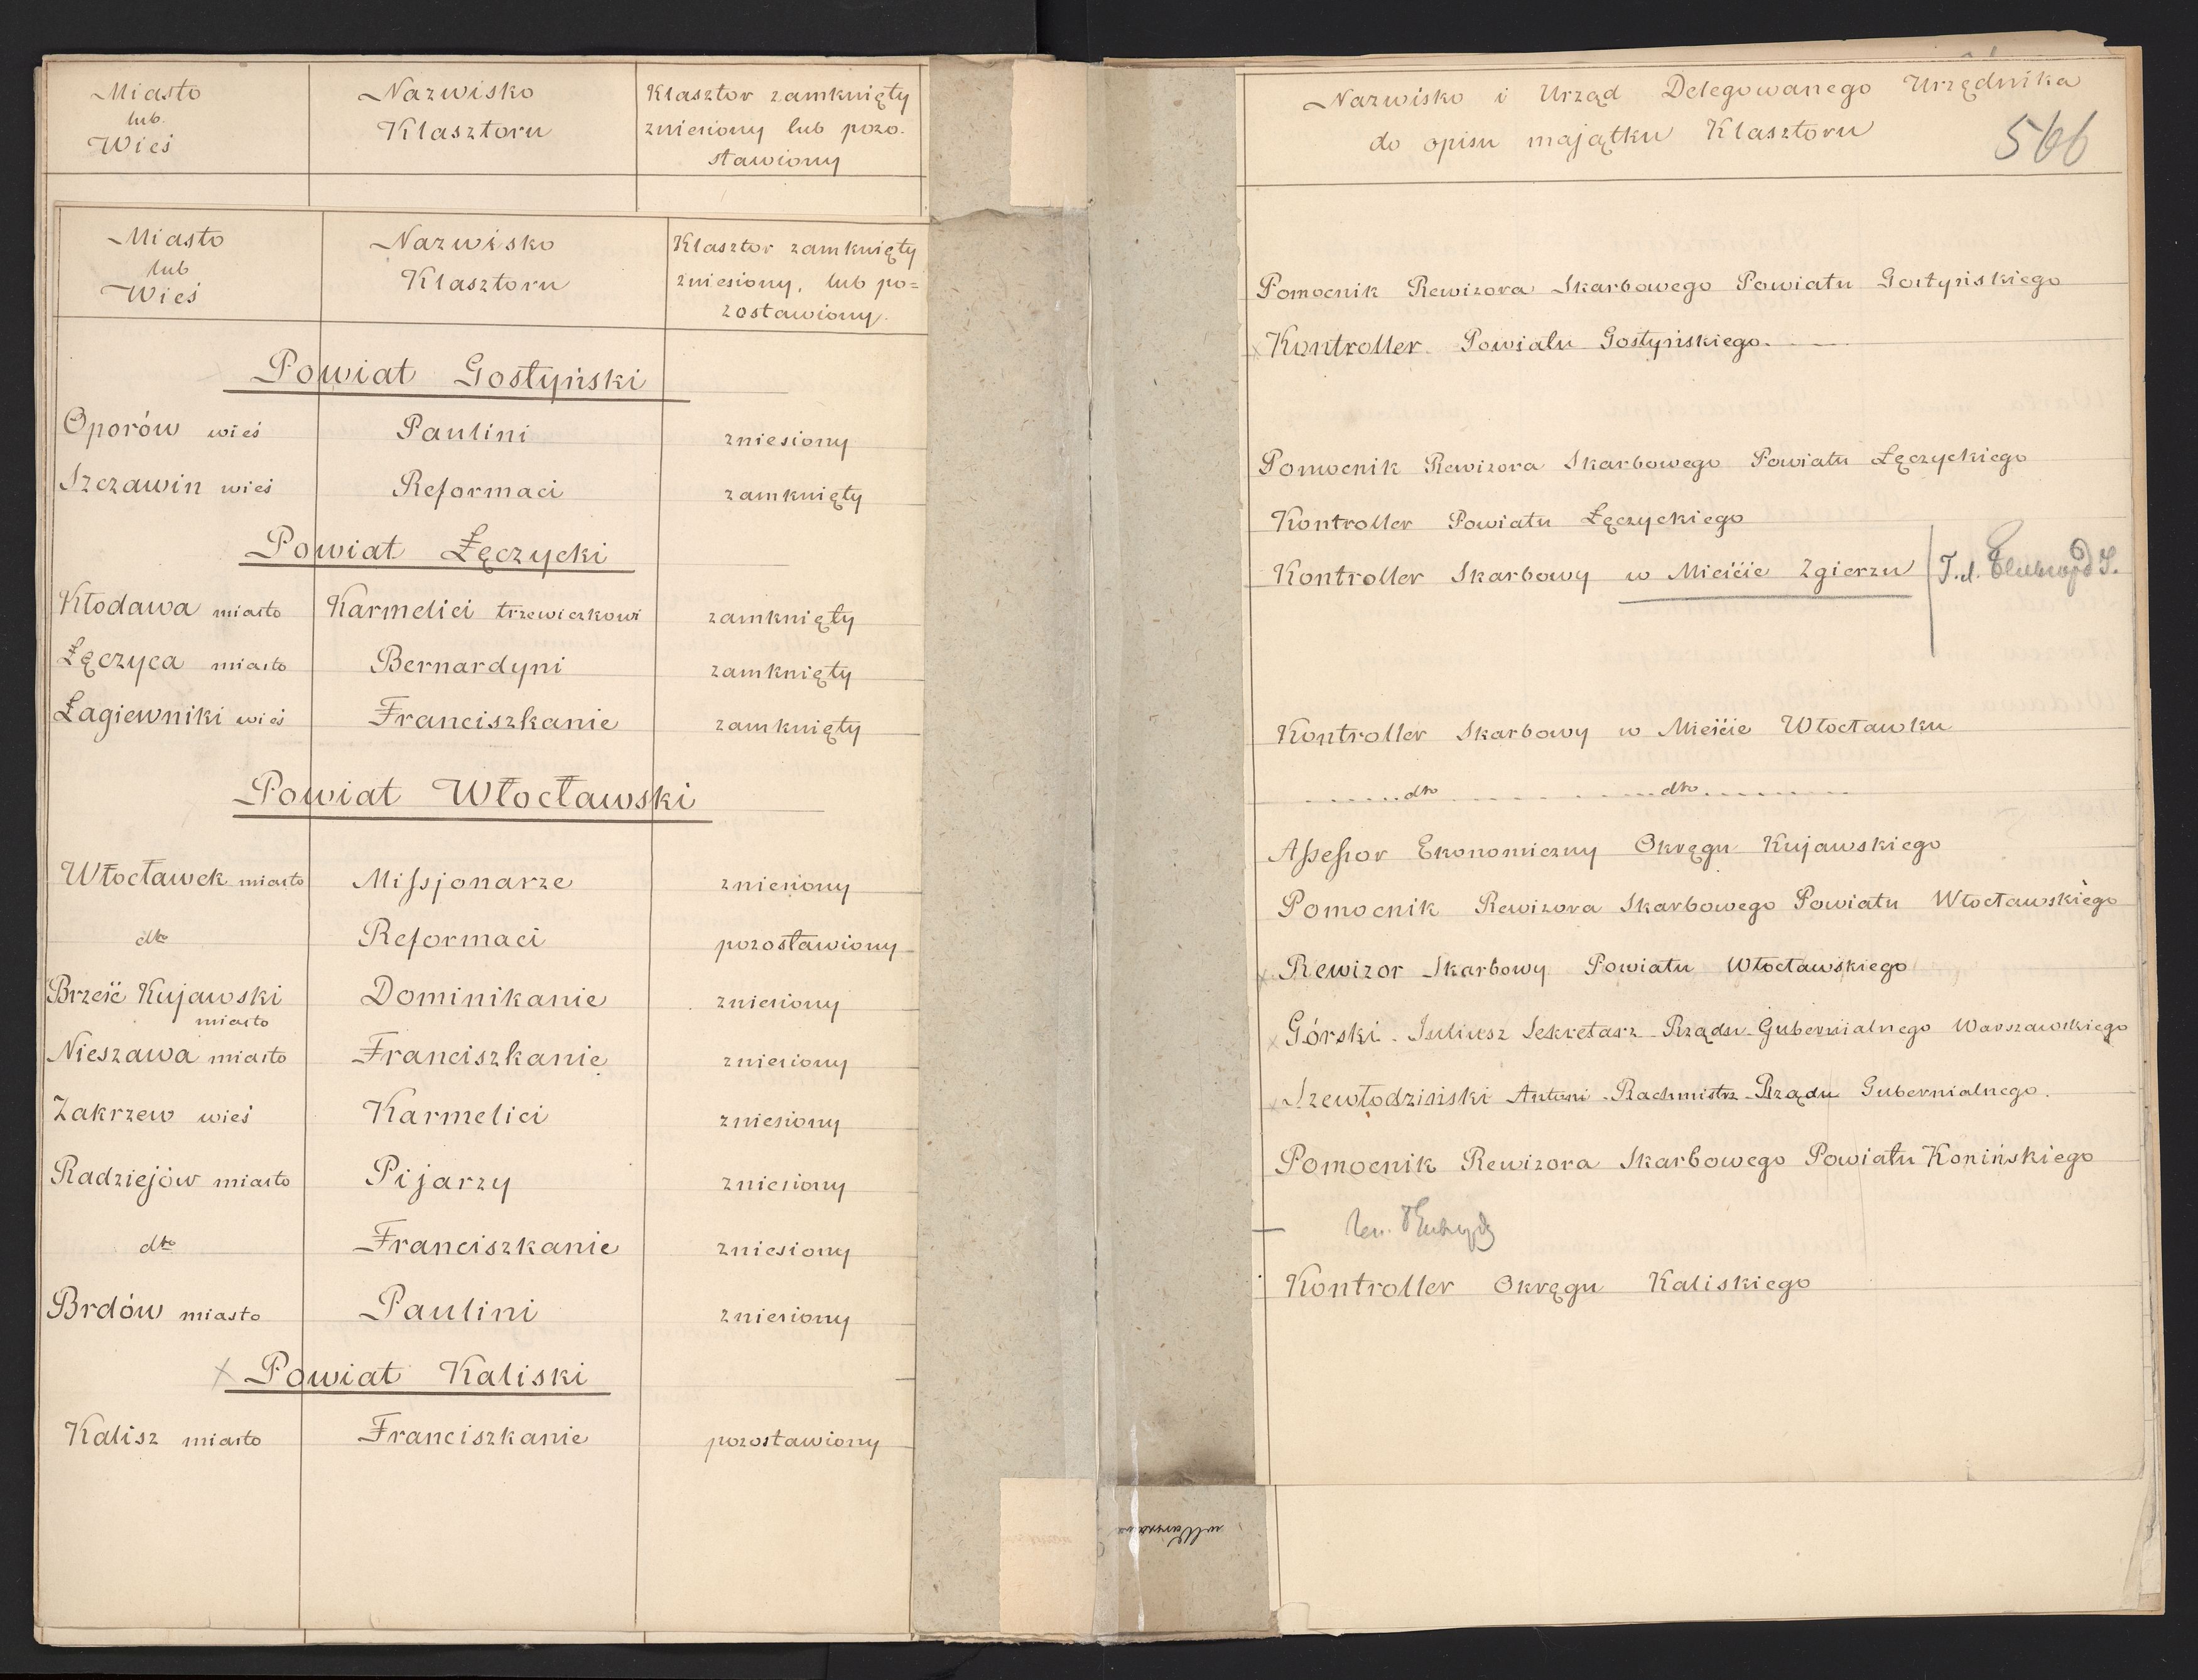 Miasto
lub
Wieś
Nazwisko
Klasztoru
Klasztor zamknięty
zniesiony lub pozo-
stawiony
Miasto
lub
Wieś
Nazwisko
Klasztoru
Klasztor zamknięty
zniesiony, lub po=
zostawiony.
Powiat Gostyński
Oporów wieś Paulini zniesiony
Szczawin wieś Reformaci zamknięty
Powiat Łęczycki
Kłodawa miasto Karmelici trzewiczkowi zamknięty
Łęczyca miasto Bernardyni zamknięty
Łagiewniki wieś Franciszkanie zamknięty
Powiat Włocławski
Włocławek miasto Missjonarze zniesiony
dto Reformaci pozostawiony
Brześć Kujawski Dominikanie zniesiony
miasto
Nieszawa miasto Franciszkanie zniesiony
Zakrzew wieś Karmelici zniesiony
Radziejów miasto Pijarzy zniesiony
dto Franciszkanie zniesiony
Brdów miasto Paulini zniesiony
x Powiat Kaliski
Kalisz miasto Franciszkanie pozostawiony
Nazwisko i Urząd Delegowanego Urzędnika
do opisu majątku Klasztoru
566
Pomocnik Rewizora Skarbowego Powiatu Gostyńskiego
x Kontroller Powiatu Gostyńskiego.
Pomocnik Rewizora Skarbowego Powiatu Łęczyckiego
Kontroller Powiatu Łęczyckiego
Kontroller Skarbowy w Mieście Zgierzu
Kontroller Skarbowy w Mieście Włocławku
dto dto
Assessor Ekonomiczny Okręgu Kujawskiego
Pomocnik Rewizora Skarbowego Powiatu Włocławskiego
x Rewizor Skarbowy Powiatu Włocławskiego
x Górski Juliusz Sekretarz Rządu Gubernialnego Warszawskiego
x Szewłodziński Antoni Rachmistrz Rządu Gubernialnego.
Pomocnik Rewizora Skarbowego Powiatu Konińskiego
Kontroller Okręgu Kaliskiego
w Warszawie